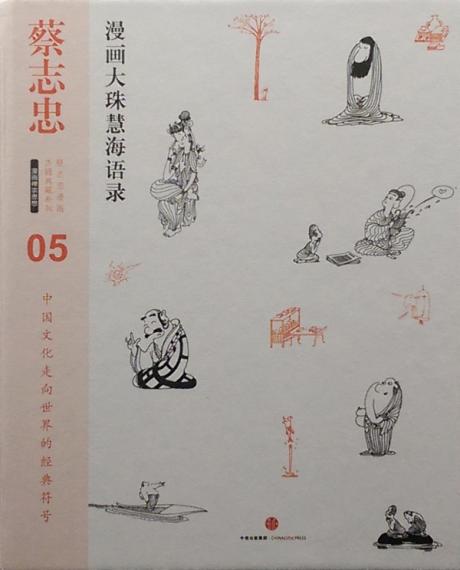 蔡志忠
漫画大珠慧海语录
蔡志忠漫画
漫画禅宗思想
05
中国文化走向世界的经典符号
中信出版集团·CHINACITICPRESS